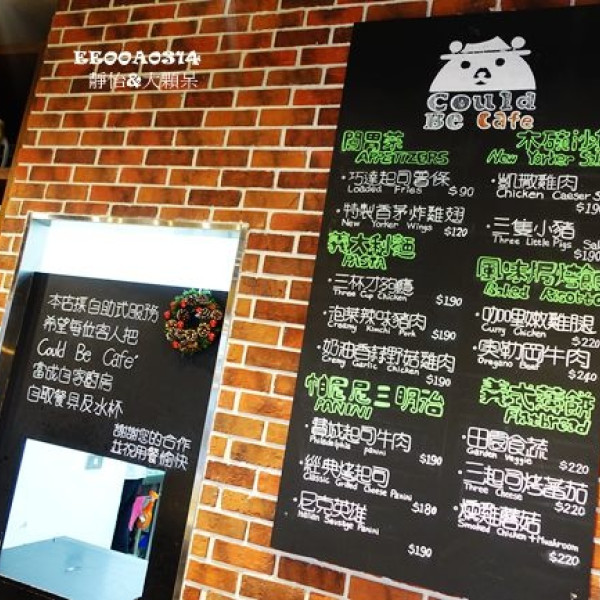 EE00A0314
靜怡&大顆呆
本店採自助式服務
希望每位客人把
Could Be Café
當成自家廚房
自取餐具及水杯
謝謝您的合作
並祝用餐愉快
Could
Be Cafe
開胃菜
APPETIZERS
·巧達起司薯條
Loaded Fries $90
·特製香茅炸雞翅
New Yorker Wings $120
義大利麵
PASTA
·三杯才夠癮
Three Cup Chicken $190
·泡菜辣味豬肉
Creamy Kimchi Pork $190
·奶油香蒜野菇雞肉
Creamy Garlic Chicken $190
帕尼尼三明治
PANINI
·費城起司牛肉
Philadelphia panini $190
·經典烤起司
Classic Grilled Cheese Panini $180
·尼克英雄
Italian Sausage Panini
$190
New Yorker
·凱撒雞肉
Chicken Caeser S
$190
·三隻小豬
Three Little Pigs Sal
$190
風味焗烤飯
Baked Risotto
·咖哩嫩雞腿
Curry Chicken $220
·奧勒岡牛肉
Oregano Beef $240
義式薄餅
Flatbread
·田園食蔬
Garden Veggie $220
·三起司烤番茄
Three Cheese $220
·燻雞蘑菇
Smoked Chicken + Mushroom
$220